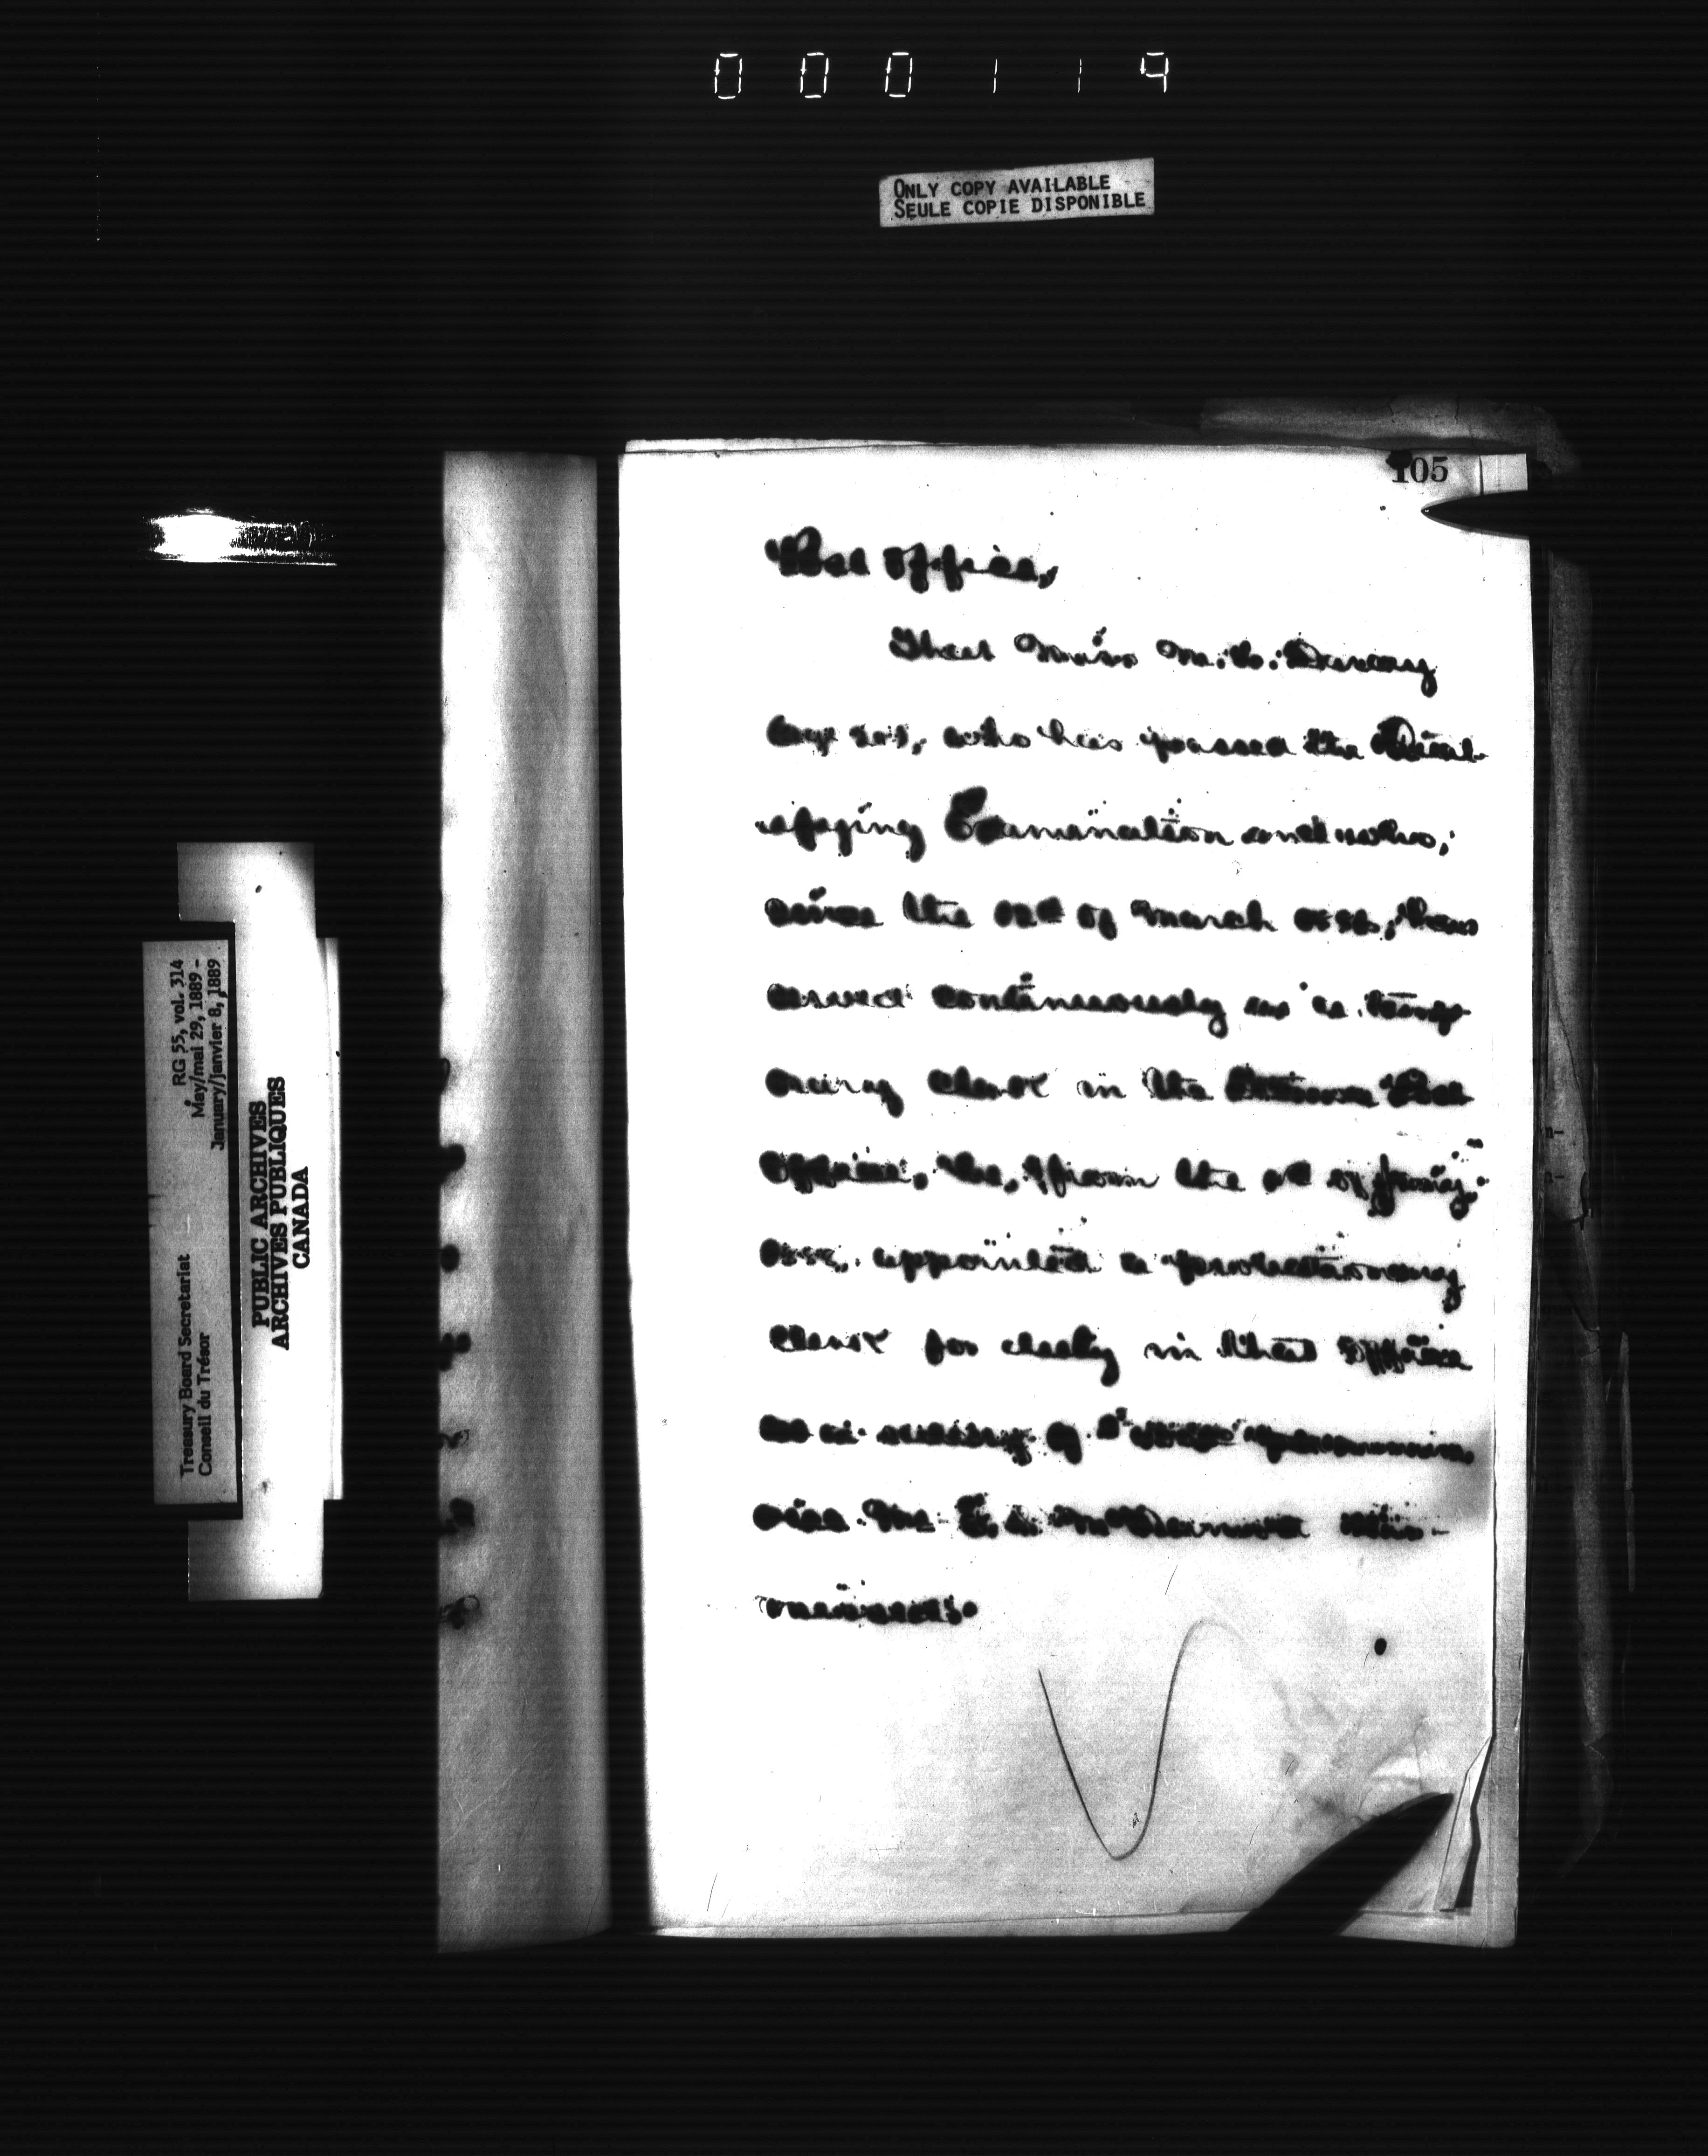 000119
ONLY COPY AVAILABLE
SEULE COPIE DISPONIBLE
RG 55, vol. 314
May/mai 29, 1889 -
January/janvier 8, 1889
Treasury Board Secretariat
Conseil du Trésor
PUBLIC ARCHIVES
ARCHIVES PUBLIQUES
CANADA
105
Post Office,
That Miss M.
who has passed the Qual-
ifying Examination and who,
since the of March has
served continuously as a temp-
orary clerk in the Ottawa Post
Office, be, from the of
appointed a probationary
clerk for duty in that Office
at a salary of per annum
vice Mr. E. McDermott